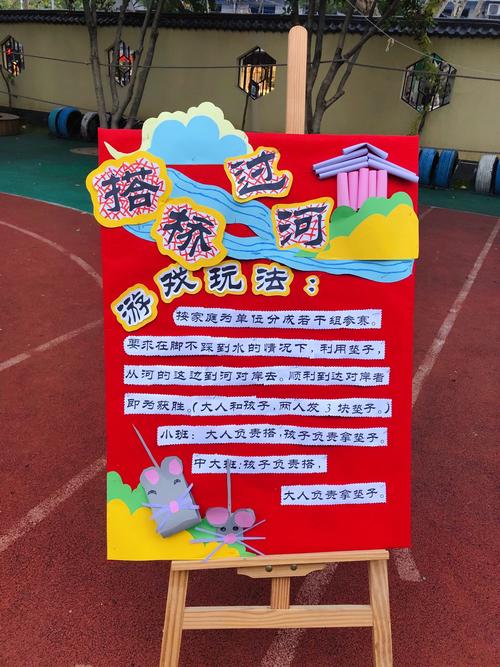 搭桥过河
游戏玩法：
按家庭为单位分成若干组参赛。
要求在脚不踩到水的情况下，利用垫子，
从河的这边到河对岸去。顺利到达对岸者
即为获胜。（大人和孩子，两人发3块垫子。）
小班：大人负责搭，孩子负责拿垫子。
中大班：孩子负责搭，
大人负责拿垫子。